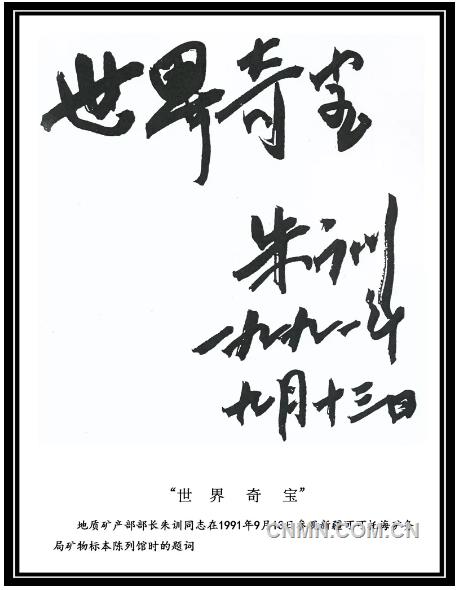 世界奇宝
朱训
一九九一年
九月十三日
“世界奇宝”
地质矿产部部长朱训同志在1991年9月13日参观新疆可可托海矿务
局矿物标本陈列馆时的题词
CNMN.COM.CN